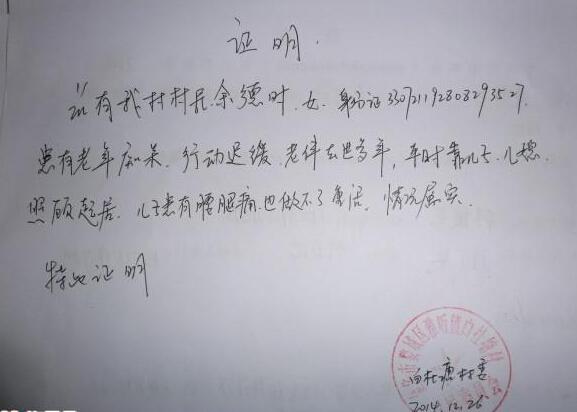 证明.
兹有我村村民余德时,女.身份证330721192808293527.
患有老年痴呆.行动迟缓.老伴去世多年,平时靠儿子.儿媳
照顾起居.儿子患有腰腿病也做不了重活.情况属实.
特此证明
白杜塘村委
2014.12.26